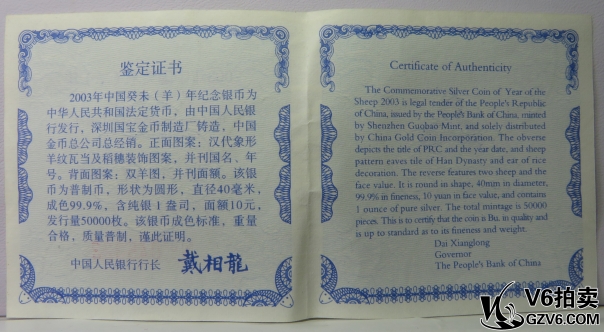 鉴定证书
2003年中国癸未（羊）年纪念银币为
中华人民共和国法定货币，由中国人民银
行发行，深圳国宝金币制造厂铸造，中国
金币总公司总经销。正面图案：汉代象形
羊纹瓦当及稻穗装饰图案，并刊国名、年
号。背面图案：双羊图，并刊面额。该银
币为普制币，形状为圆形，直径40毫米，
成色99.9%，含纯银1盎司，面额10元，
发行量50000枚。该银币成色标准，重量
合格，质量普制，谨此证明。
中国人民银行行长 戴相龍
Certificate of Authenticity
The Commemorative Silver Coin of Year of the
Sheep 2003 is legal tender of the People's Republic
of China, issued by the People's Bank of China, minted
by Shenzhen Guobao Mint, and solely distributed
by China Gold Coin Incorporation. The obverse
depicts the title of PRC and the year date, and sheep
pattern eaves tile of Han Dynasty and ear of rice
decoration. The reverse features two sheep and the
face value. It is round in shape, 40mm in diameter,
99.9% in fineness, 10 yuan in face value, and contains
1 ounce of pure silver. The total mintage is 50000
pieces. This is to certify that the coin is Bu. in quality and
is up to standard as to its fineness and weight.
Dai Xianglong
Governor
The People's Bank of China
V6拍卖
GZV6.COM